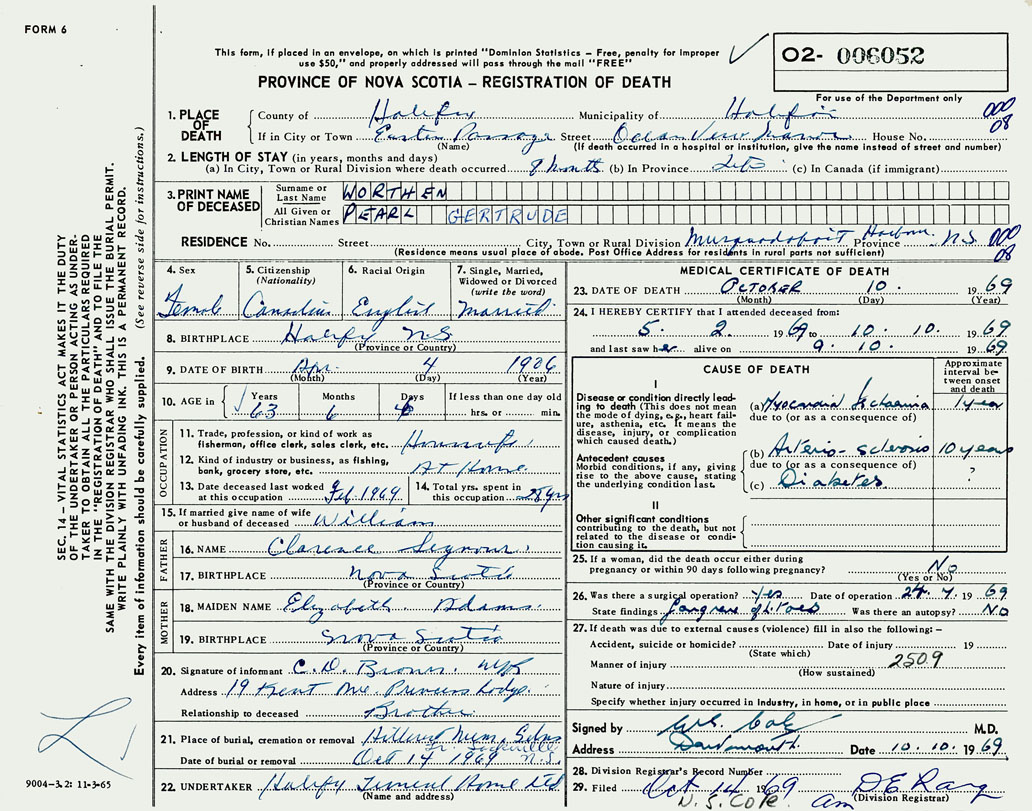 FORM 6
This form, if placed in an envelope, on which is printed "Dominion Statistics – Free, penalty for improper
use $50," and properly addressed will pass through the mail "FREE"
PROVINCE OF NOVA SCOTIA – REGISTRATION OF DEATH
O2- 006052
For use of the Department only
1. PLACE OF DEATH County of Halifax Municipality of Halifax 000
If in City or Town Eastern Passage Street Ocean View Manor House No. 08
(Name) (If death occurred in a hospital or institution, give the name instead of street and number)
2. LENGTH OF STAY (in years, months and days)
(a) In City, Town or Rural Division where death occurred 8 months (b) In Province Life (c) In Canada (if immigrant)
3. PRINT NAME OF DECEASED Surname or Last Name WORTHEN
All Given or Christian Names PEARL GERTRUDE
RESIDENCE No. Street City, Town or Rural Division Musquodoboit Harbour Province N.S. 000
(Residence means usual place of abode. Post Office Address for residents in rural parts not sufficient) 08
4. Sex Female
5. Citizenship (Nationality) Canadian
6. Racial Origin English
7. Single, Married, Widowed or Divorced (write the word) Married
8. BIRTHPLACE Halifax NS
(Province or Country)
9. DATE OF BIRTH Apr. 4 1906
(Month) (Day) (Year)
10. AGE in Years 63 Months 6 Days 6 If less than one day old hrs. or min.
OCCUPATION
11. Trade, profession, or kind of work as fisherman, office clerk, sales clerk, etc. Housewife
12. Kind of industry or business, as fishing, bank, grocery store, etc. At Home
13. Date deceased last worked at this occupation Feb 1969
14. Total yrs. spent in this occupation 28 yrs
15. If married give name of wife or husband of deceased William
FATHER
16. NAME Clarence Seymour
17. BIRTHPLACE Nova Scotia
(Province or Country)
MOTHER
18. MAIDEN NAME Elizabeth Adams
19. BIRTHPLACE Nova Scotia
(Province or Country)
20. Signature of informant C. D. Brown
Address 19 Kent Ave. Princess Lodge
Relationship to deceased Brother
21. Place of burial, cremation or removal Hillcrest Mem. Gdns
Lr. Sackville
Date of burial or removal Oct 14 1969 N.S.
22. UNDERTAKER Halifax Funeral Home Ltd
(Name and address)
MEDICAL CERTIFICATE OF DEATH
23. DATE OF DEATH OCTOBER 10. 1969
(Month) (Day) (Year)
24. I HEREBY CERTIFY that I attended deceased from:
5. 2. 1969 to 10. 10. 1969
and last saw her alive on 9. 10. 1969
CAUSE OF DEATH
Approximate interval between onset and death
I
Disease or condition directly leading to death (This does not mean the mode of dying, e.g., heart failure, asthenia, etc. It means the disease, injury, or complication which caused death.)
(a) Myocardial Ischaemia 1 year
due to (or as a consequence of)
Antecedent causes
Morbid conditions, if any, giving rise to the above cause, stating the underlying condition last.
(b) Arterio-sclerosis 10 years
due to (or as a consequence of) ?
(c) Diabetes
II
Other significant conditions
contributing to the death, but not related to the disease or condition causing it.
25. If a woman, did the death occur either during pregnancy or within 90 days following pregnancy? No
(Yes or No)
26. Was there a surgical operation? Yes Date of operation 24. 7. 1969
State findings Gangrene of toes Was there an autopsy? No
27. If death was due to external causes (violence) fill in also the following: –
Accident, suicide or homicide? Date of injury 19
(State which)
Manner of injury 2509
(How sustained)
Nature of injury
Specify whether injury occurred in Industry, in home, or in public place
Signed by M.D.
Address Dartmouth Date 10. 10. 1969
28. Division Registrar's Record Number
29. Filed Oct 14 1969
N. S. Cole am (Division Registrar)
SEC. 14 – VITAL STATISTICS ACT MAKES IT THE DUTY
OF THE UNDERTAKER OR PERSON ACTING AS UNDER-
TAKER TO OBTAIN ALL THE PARTICULARS REQUIRED
IN THE "REGISTRATION OF DEATH" AND TO FILE THE
SAME WITH THE DIVISION REGISTRAR WHO SHALL ISSUE THE BURIAL PERMIT.
WRITE PLAINLY WITH UNFADING INK. THIS IS A PERMANENT RECORD.
Every item of information should be carefully supplied. (See reverse side for instructions.)
9004-3.2: 11-3-65